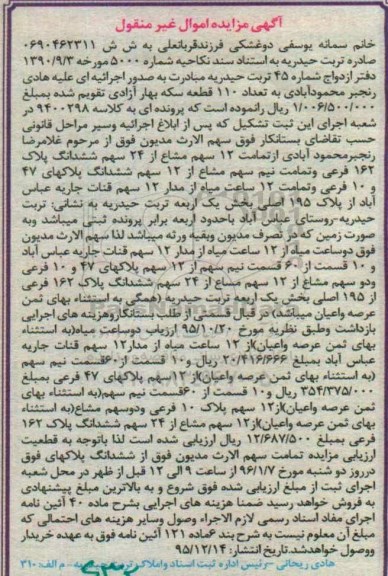 آگهی مزایده اموال غیر منقول
خانم سمانه یوسفی دوغشکی فرزندقربانعلی به ش ش ۰۶۹۰۴۶۲۳۱۱
صادره تربت حیدریه به استناد سند نکاحیه شماره ۵۰۰۰ مورخه ۱۳۹۰/۹/۳
دفتر ازدواج شماره ۴۵ تربت حیدریه مبادرت به صدور اجرائیه ای علیه هادی
رنجبر محمودآبادی به تعداد ۱۱۰ قطعه سکه بهار آزادی تقویم شده بمبلغ
۱/۰۰۶/۵۰۰/۰۰۰ ریال رانموده است که پرونده ای به کلاسه ۹۴۰۰۲۹۸ در
شعبه اجرای این ثبت تشکیل که پس از ابلاغ اجرائیه وسیر مراحل قانونی
حسب تقاضای بستانکار فوق سهم الارث مدیون فوق از مرحوم غلامرضا
رنجبرمحمود آبادی ازتمامت ۱۲ سهم مشاع از ۲۴ سهم ششدانگ پلاک
۱۶۲ فرعی وتمامت نیم سهم مشاع از ۱۲ سهم ششدانگ پلاکهای ۴۷
و ۱۰ فرعی وتمامت ۱۲ ساعت میاه از مدار ۱۲ سهم قنات جاریه عباس
آباد از پلاک ۱۹۵ اصلی بخش یک اربعه تربت حیدریه به نشانی: تربت
حیدریه-روستای عباس آباد باحدود اربعه برابر پرونده ثبتی میباشد وبه
صورت زمین که در تصرف مدیون وبقیه ورثه میباشد لذا سهم الارث مدیون
فوق دوساعت میاه از ۱۲ ساعت میاه از مدار ۱۲ سهم قنات جاریه عباس آباد
و ۱۰ قسمت از ۶۰ قسمت نیم سهم از ۱۲ سهم پلاکهای ۴۷ و ۱۰ فرعی
ودو سهم مشاع از ۱۲ سهم مشاع از ۲۴ سهم ششدانگ پلاک ۱۶۲ فرعی
از ۱۹۵ اصلی بخش یک اربعه تربت حیدریه (همگی به استثناء بهای ثمن
عرصه واعیان میباشد) در قبال قسمتی از طلب بستانکاروهزینه های اجرایی
بازداشت وطبق نظریه مورخ ۹۵/۱۰/۲۰ ارزیاب دوساعت میاه(به استثناء
بهای ثمن عرصه واعیان)از ۱۲ ساعت میاه از مدار۱۲ سهم قنات جاریه
عباس آباد بمبلغ ۲۰/۴۱۶/۶۶۶ ریال و۱۰ قسمت از ۶۰قسمت نیم سهم
(به استثناء بهای ثمن عرصه واعیان)از ۱۲سهم پلاکهای ۴۷ فرعی بمبلغ
۳۵۴/۳۷۵/۰۰۰ ریال و۱۰ قسمت از ۶۰قسمت نیم سهم(به استثناء بهای
ثمن عرصه واعیان)از۱۲ سهم پلاک ۱۰ فرعی ودوسهم مشاع(به استثناء
بهای ثمن عرصه واعیان)از۱۲ سهم مشاع از ۲۴ سهم ششدانگ پلاک ۱۶۲
فرعی بمبلغ ۱۲/۶۸۷/۵۰۰ ریال ارزیابی شده است لذا باتوجه به قطعیت
ارزیابی مزایده تمامت سهم الارث مدیون فوق از ششدانگ پلاکهای فوق
درروز دو شنبه مورخ ۹۶/۱/۷ از ساعت ۹ الی ۱۲ قبل از ظهر در محل شعبه
اجرای ثبت از مبلغ ارزیابی شده فوق شروع و به بالاترین مبلغ پیشنهادی
به فروش خواهد رسید ضمنا هزینه های اجرایی بشرح ماده ۴۰ آئین نامه
اجرای مفاد اسناد رسمی لازم الاجراء وصول وسایر هزینه های احتمالی که
مبلغ آن معلوم نیست به شرح بند ۶ماده ۱۲۱ آئین نامه فوق به عهده خریدار
ووصول خواهدشد.تاریخ انتشار: ۹۵/۱۲/۱۴
هادی ریحانی -رئیس اداره ثبت اسناد واملاک تربت حیدریه- م الف: ۳۱۰